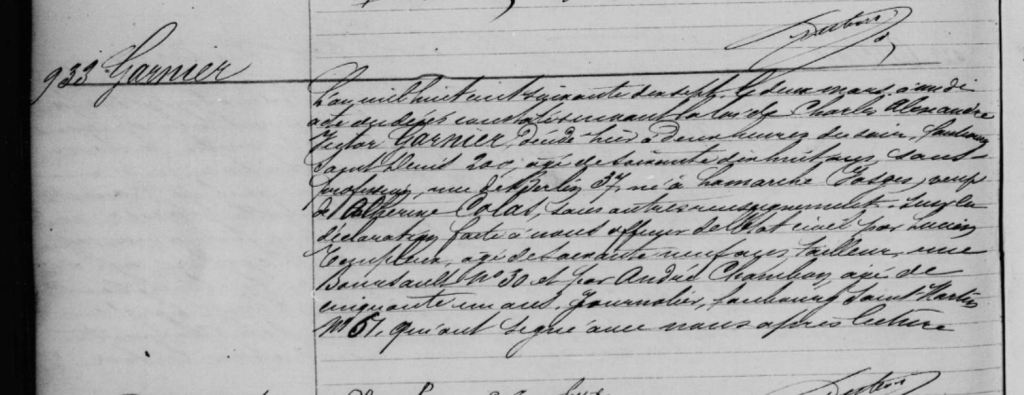 933 Garnier
L'an mil huit cent soixante dix sept, le deux mars, à midi
acte de décès constaté suivant la loi de Charles Alexandre
Victor Garnier, décédé hier à deux heures du soir, faubourg
Saint Denis 200, âgé de soixante dix huit ans, sans
profession, rue de Berlin 37, né à Lamarche Vosges, veuf
de Catherine Colas, sans autres renseignements. Sur la
déclaration faite à nous officier de l'Etat civil par Lucien
âgé de soixante neuf ans, tailleur, rue
Boursault No 30 et par André Chambon, âgé de
cinquante un ans, journalier, faubourg Saint Martin
No 51, qui ont signé avec nous après lecture